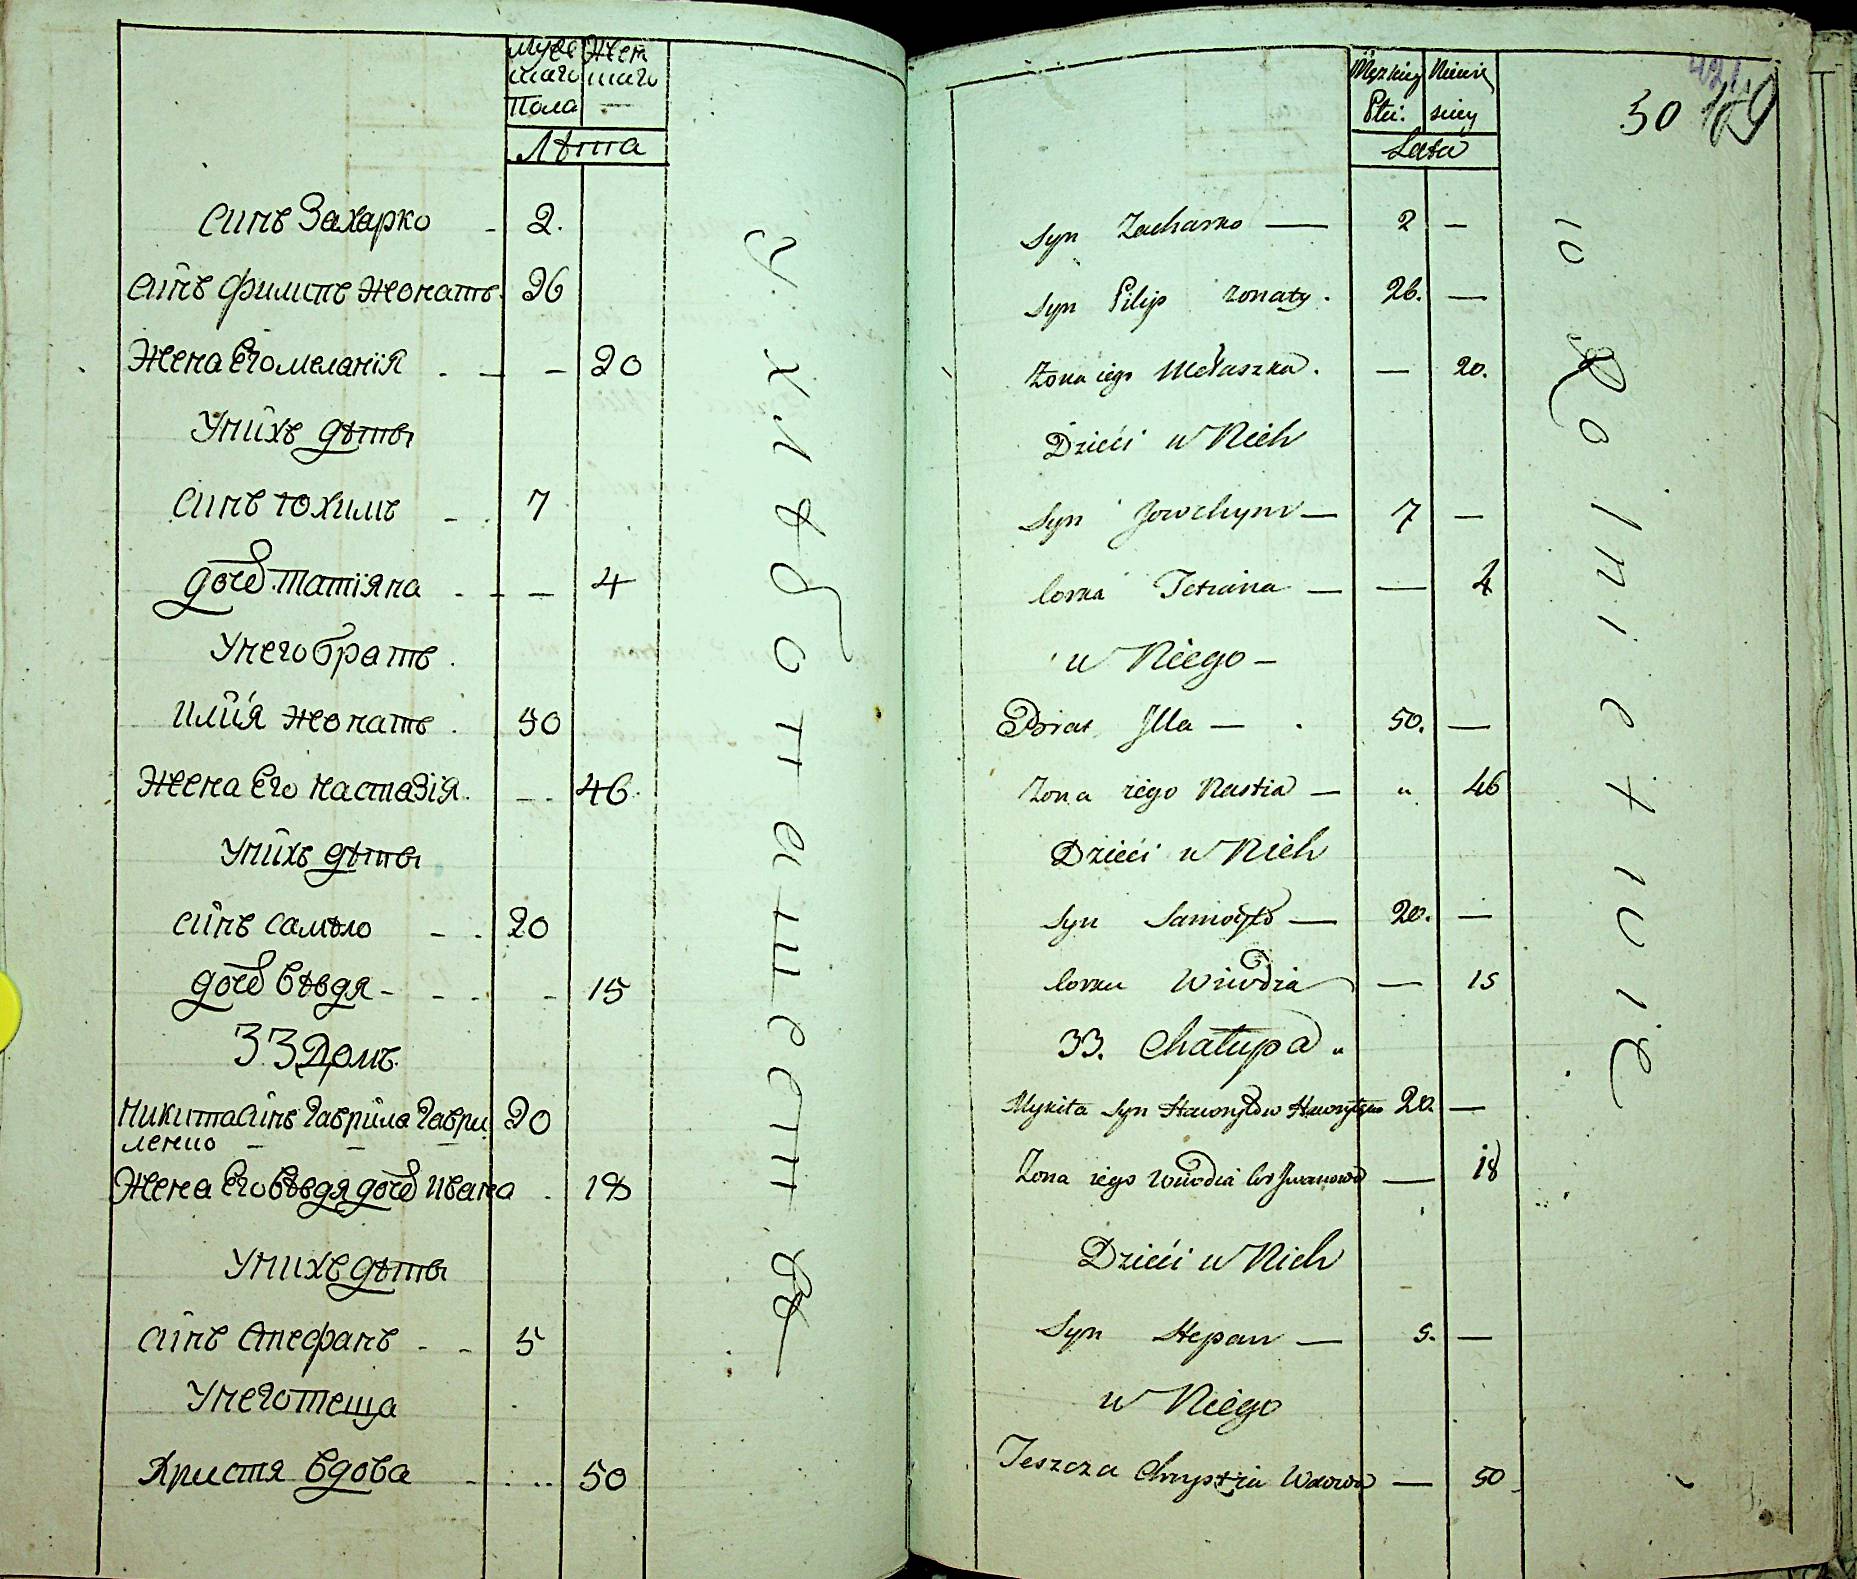 Мужескаго Пола
Женскаго
Лѣта
Синъ Захарко 2.
Синъ Филипъ Жонатъ. 26
Жена Его Меланія 20
У нихъ дѣти
Синъ Юхимъ 7
дочь Татіяна 4
У него братъ.
Илия Жонатъ. 50
Жена Его Настазія. 46.
У нихъ дѣти
Синъ Самѣло 20
дочь Евдя 15
33 Домъ.
Никита Синъ Гаврила Гаври 20
ленко
Жена Его Евдя дочь Ивана 18
У нихъ дѣти
Синъ Стефанъ 5
У него теща
Христя вдова 50
У. Хлѣбопашеств
Męzkiey Płci.
Lata
50
Syn Zacharko — 2 —
Syn Filip żonaty. 26. —
Żona iego Mełaszka. — 20.
Dzieci u Nich
Syn Jowchym — 7 —
Corka Tetiana — — 4
u Niego —
Brat Illa — 50. —
Żona iego Nastia — " 46
Dzieci u Nich
Syn Samoyło — 20. —
Corka Wiwdia — 15
33. Chałupa "
Mykita Syn Hawryłow 20. —
Żona iego Wiwdia Cor Iwanowa — 18
Dzieci u Nich
Syn Stepan — 5. —
u Niego
Teszcza Chrystia Wdowa — 50
w Rolnictwie